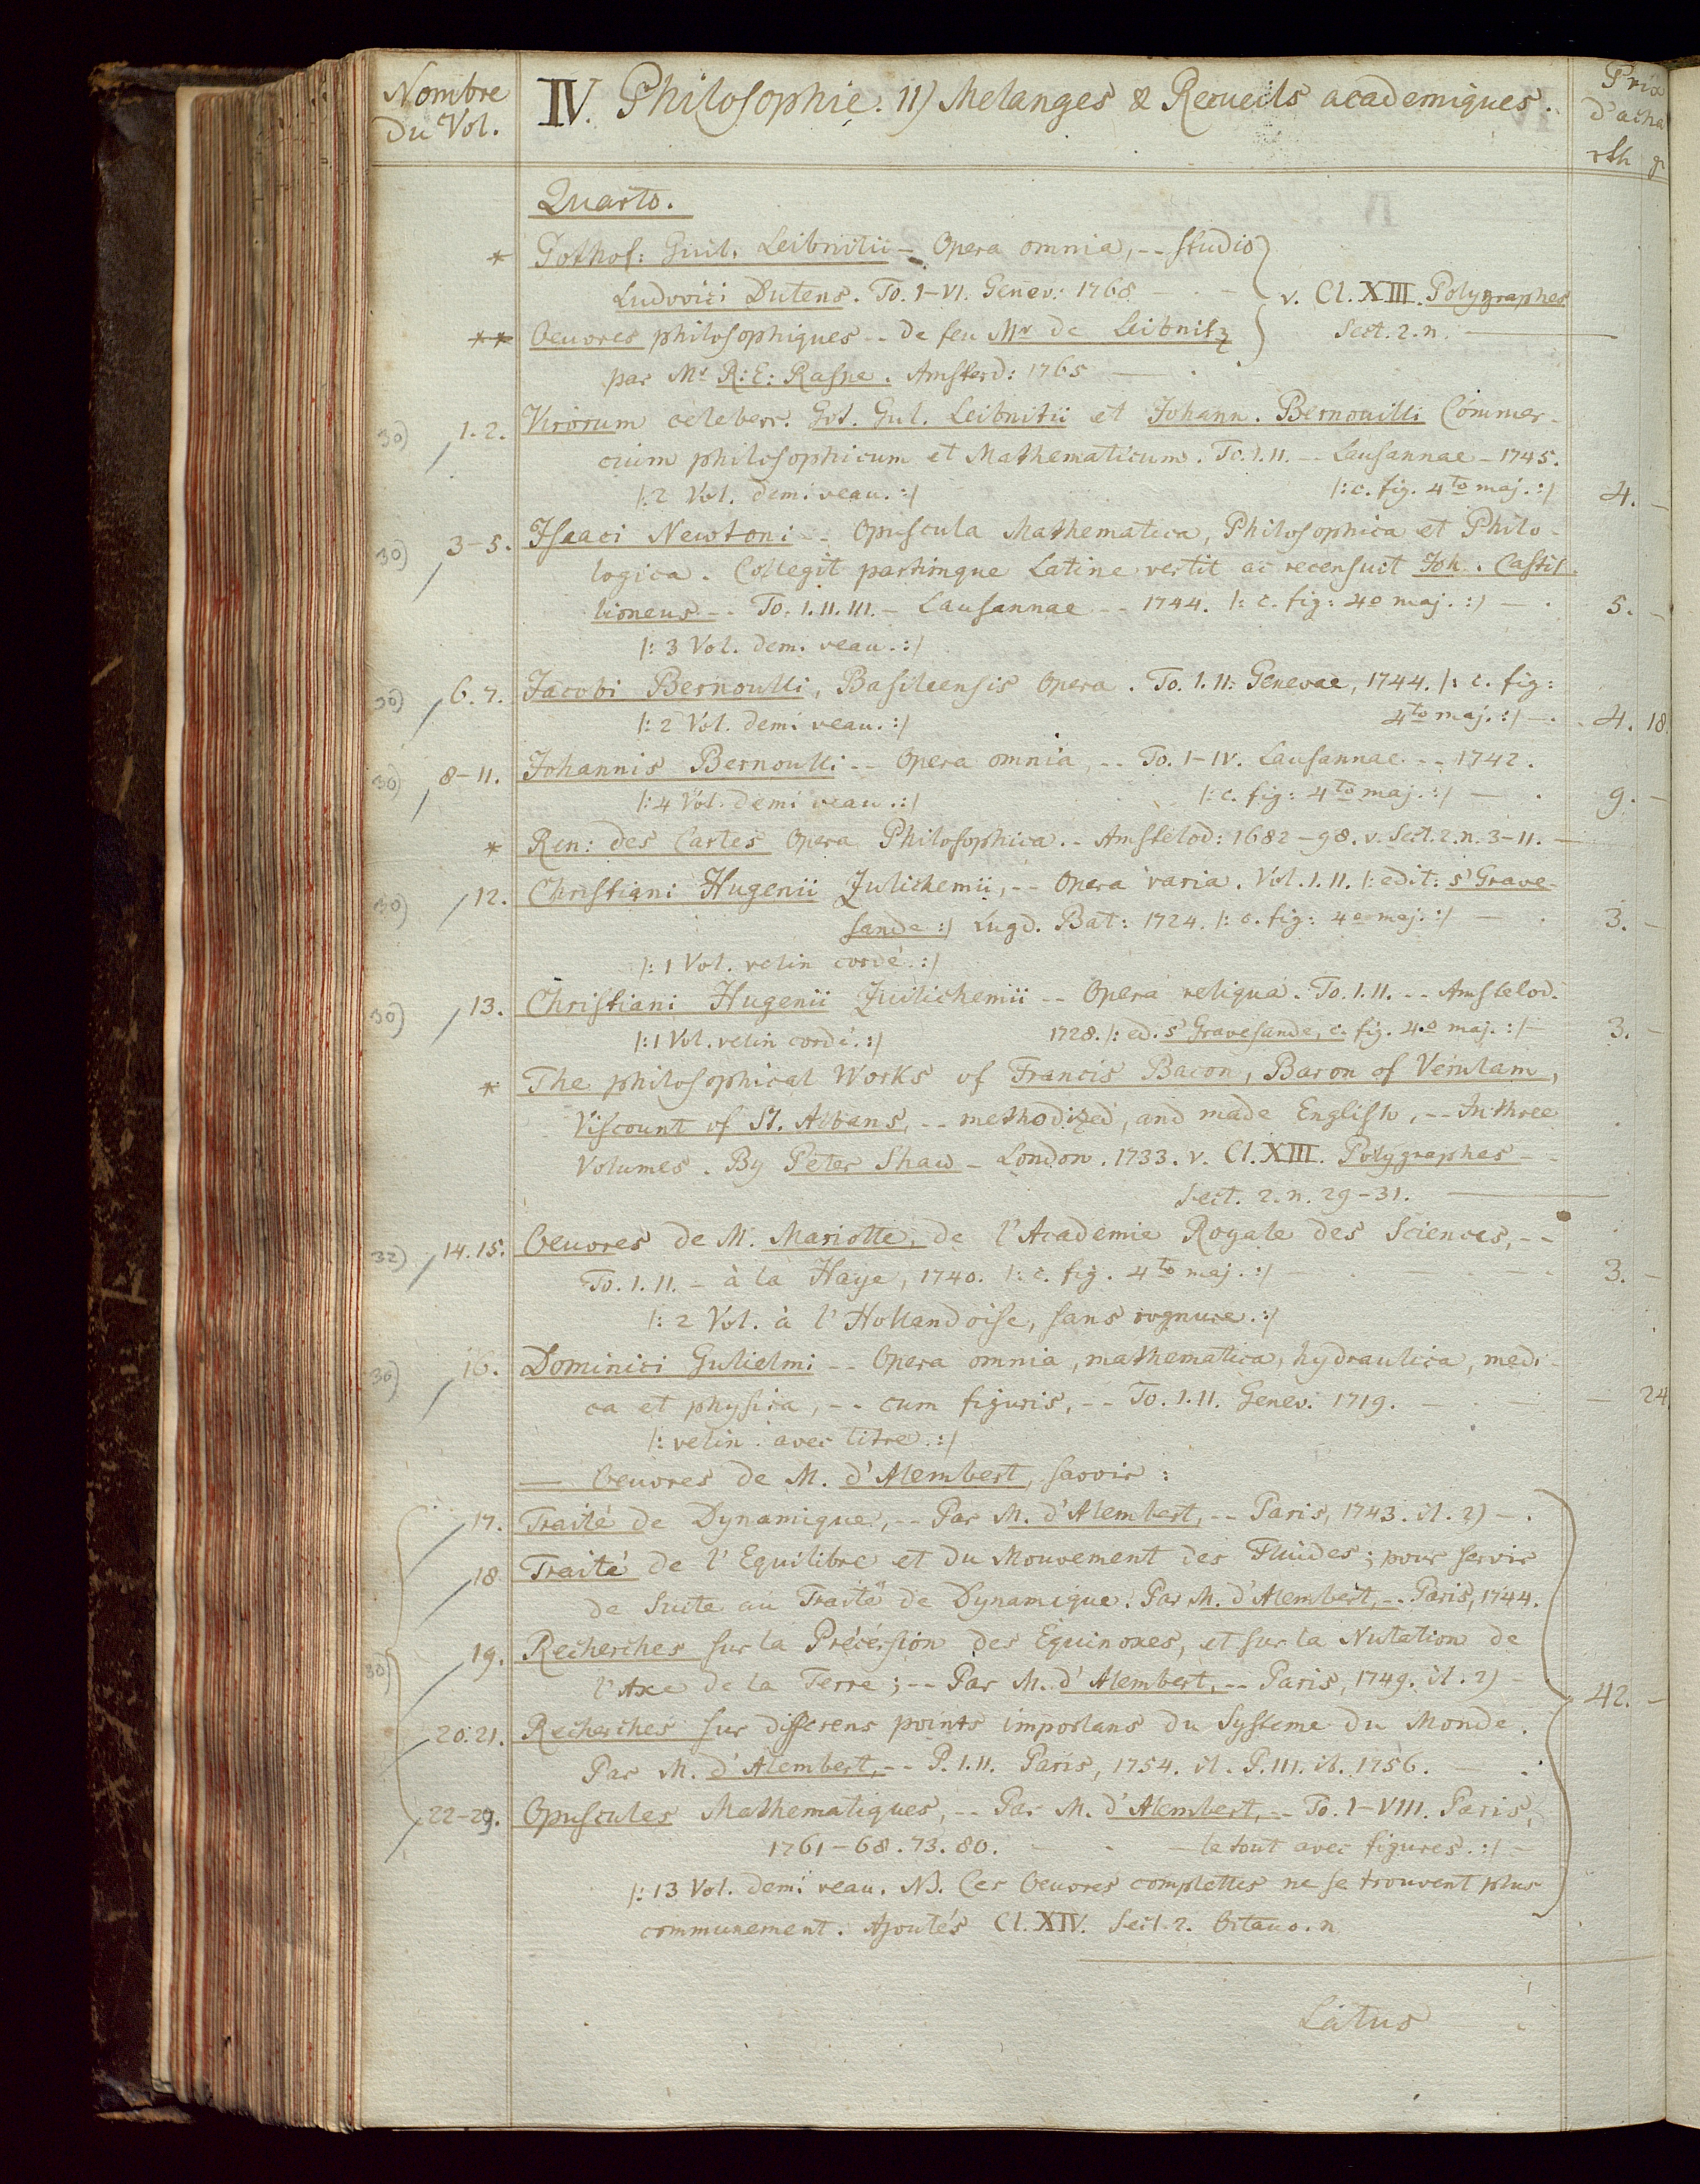 Nombre
du Vol.
IV. Philosophie. 11) Melanges & Recueils academiques.
Prix
d'acha
rth gr
Quarto.
* Gothof: Guil. Leibnitii -- Opera omnia, -- studio
Ludovici Dutens. To. I-VI. Genev: 1768 - v. Cl. XIII. Polygraphes
** Oeuvres philosophiques -- de feu Mr. de Leibnitz Sect. 2. n. —
par Mr. R: E: Raspe. Amsterd: 1765 —
30) 1. 2. Virorum celeberr. Got. Gul. Leibnitii et Johann. Bernouilli Commer-
cium philosophicum et Mathematicum. To. I. II. -- Lausannae - 1745.
|: 2 Vol. demi veau. :| |: c. fig. 4to maj. :| 4. -
30) 3-5. Isaaci Newtoni -- Opuscula Mathematica, Philosophica et Philo-
logica. Collegit partimque Latine vertit ac recensuit Joh. Castil-
lioneus -- To. I. II. III. - Lausannae -- 1744. |: c. fig: 4o maj. :| — 5. -
|: 3 Vol. dem. veau. :|
30) 6. 7. Jacobi Bernoulli, Basileensis Opera. To. I. II. Genevae, 1744. |: c. fig:
|: 2 Vol. demi veau. :| 4to maj. :| — 4. 18.
30) 8-11. Johannis Bernoulli -- Opera omnia, -- To. I-IV. Lausannae -- 1742.
|: 4 Vol. demi veau. :| |: c. fig: 4to maj. :| — 9. -
* Ren: des Cartes Opera Philosophica. - Amstelod: 1682-98. v. Sect. 2. n. 3-11. —
30) 12. Christiani Hugenii Zulichemii, -- Opera varia. Vol. I. II. |: edit: s'Grave-
sande :| Lugd. Bat: 1724. |: c. fig: 4o maj. :| — 3. -
|: 1 Vol. velin cordé. :|
30) 13. Christiani Hugenii Zuilichemii -- Opera reliqua. To. I. II. -- Amstelod.
|: 1 Vol. velin cordé. :| 1728. |: ed. s'Gravesande, c. fig. 4o maj. :| — 3. -
* The philosophical Works of Francis Bacon, Baron of Verulam,
Viscount of St. Albans, -- methodized, and made English, -- In three
Volumes. By Peter Shaw - London. 1733. v. Cl. XIII. Polygraphes -
Sect. 2. n. 29-31. —
32) 14. 15. Oeuvres de M. Mariotte, de l'Academie Royale des Sciences, --
To. I. II. - à la Haye, 1740. |: c. fig. 4to maj. :| 3. -
|: 2 Vol. à l'Hollandoise, sans rognure. :|
30) 16. Dominici Gulielmi -- Opera omnia, mathematica, hydraulica, medi-
ca et physica, -- cum figuris, -- To. I. II. Genev. 1719. — - 24
|: velin. avec titre. :|
— Oeuvres de M. d'Alembert, savoir:
17. Traité de Dynamique, -- Par M. d'Alembert, -- Paris, 1743. it. 2) -
18 Traité de l'Equilibre et du Mouvement des Fluides; pour servir
de Suite au Traité de Dynamique. Par M. d'Alembert, -- Paris, 1744.
30) 19. Recherches sur la Précession des Equinoxes, et sur la Nutation de
l'Axe de la Terre; -- Par M. d'Alembert, -- Paris, 1749. it. 2) - 42. -
20. 21. Recherches sur differens points importans du Systeme du Monde.
Par M. d'Alembert, -- P. I. II. Paris, 1754. it. P. III. ib. 1756. —
22-29. Opuscules Mathematiques, -- Par M. d'Alembert, -- To. I-VIII. Paris,
1761-68. 73. 80. - - le tout avec figures. :| -
|: 13 Vol. demi veau. NB. Ces Oeuvres complettes ne se trouvent plus
communement. Ajoutés Cl. XIV. Sect. 2. Octavo. n
Latus